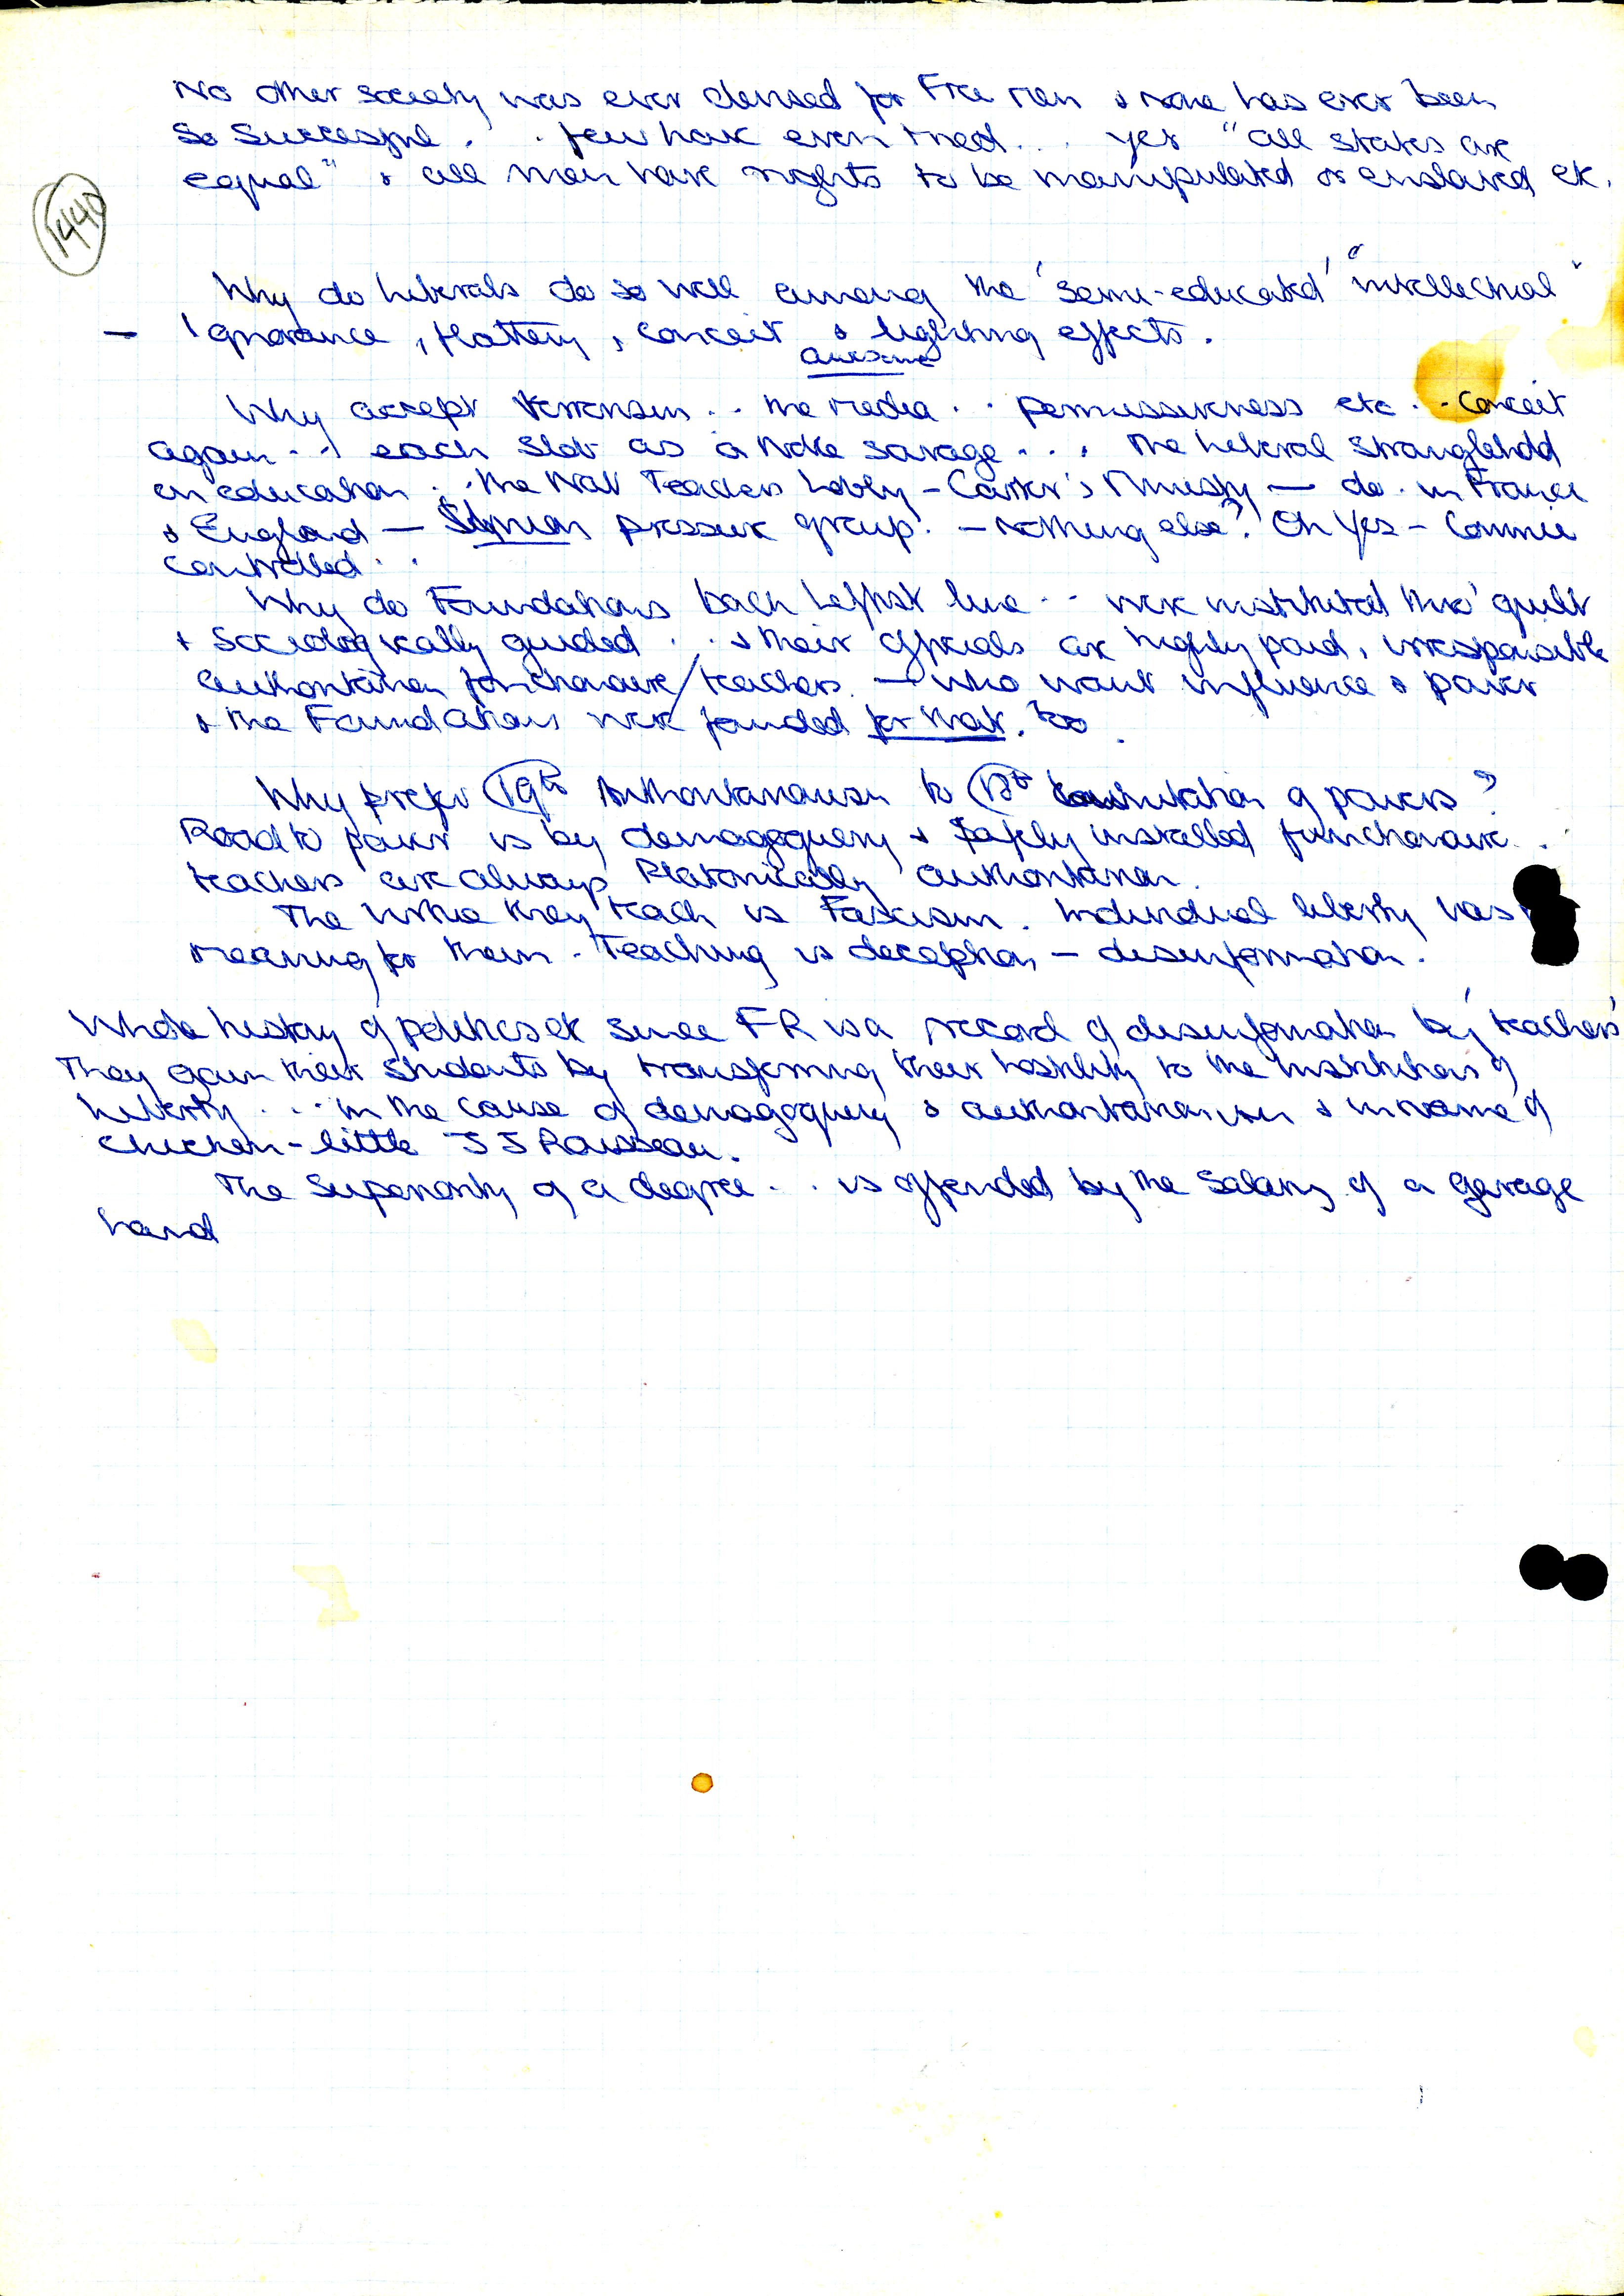 1440
No other society was ever devised for Free men & none has ever been
so successful . . few have even tried . . . yes "all states are
equal" & all men have rights to be manipulated or enslaved etc.
Why do Liberals do so well among the 'semi-educated' "intellectual"
— Ignorance, flattery, conceit & lighting effects.
awesome
Why accept terrorism . . the media . . permissiveness etc . . conceit
again . . each slob as a noble savage . . . the liberal stranglehold
on education . . the Natl Teachers Lobby – Carter's Ministry — do. in France
& England — pressure group! – Nothing else? Oh Yes – Commie
controlled . .
Why do Foundations back Leftist line . . were instituted thro' guilt
& sociologically guided . . & their officials are highly paid, irresponsible
authoritarian fonctionnaire/teachers — who want influence & power
& the Foundations were founded for that, too.
Why prefer 19th Authoritarianism to 18th constitution of powers?
Road to power is by demagoguery & safely installed functionaire . .
teachers are always Platonically authoritarian.
The virtue they teach is Fascism. Individual liberty has
meaning for them. Teaching is deception, – disinformation.
Whole history of politics etc since FR is a record of disinformation by 'teachers'
They gain their students by transferring their hostility to the institutions of
liberty . . . in the cause of demagoguery & authoritarianism & in name of
chicken-little J J Rousseau.
The Superiority of a degree . . is offended by the salary of a garage
hand